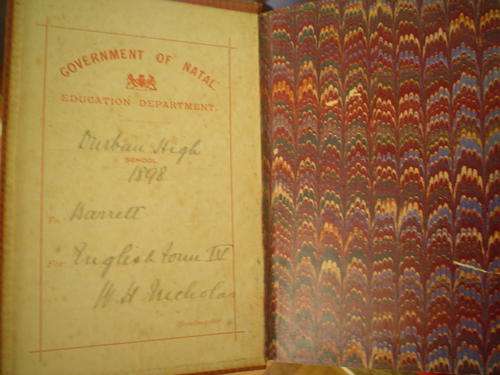 GOVERNMENT OF NATAL
EDUCATION DEPARTMENT.
Durban High
SCHOOL
1898
To Barrett
For English Form IV
W H Nicholas